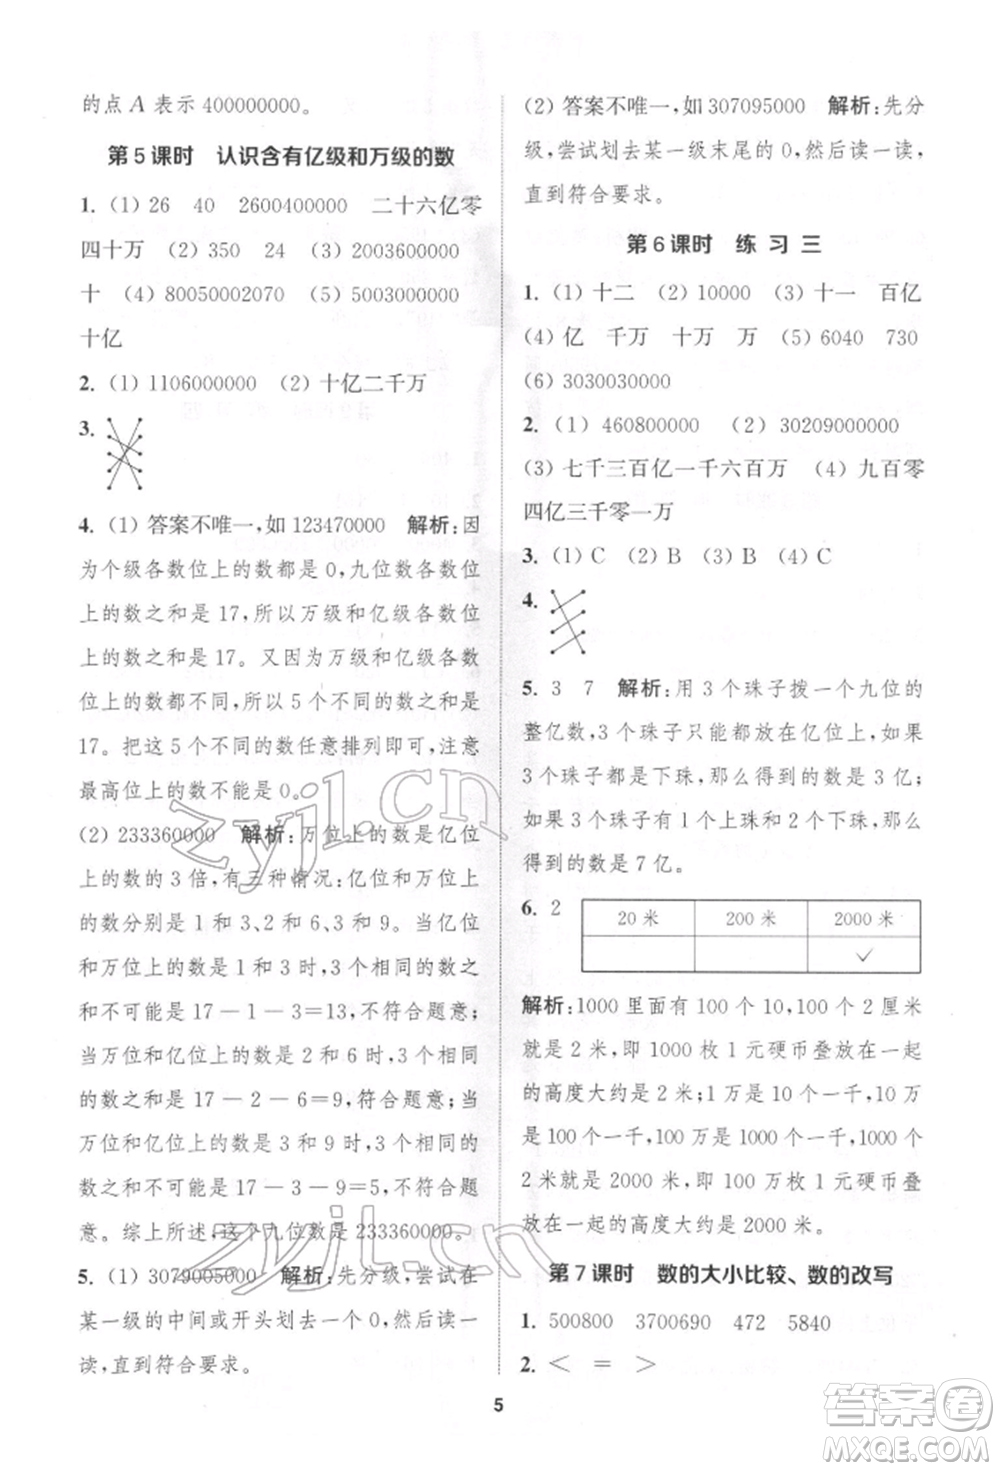 的点 A 表示 400000000。
第 5 课时　认识含有亿级和万级的数
1. (1) 26　40　2600400000　二十六亿零
四十万　(2) 350　24　(3) 2003600000
十　(4) 80050002070　(5) 5003000000
十亿
2. (1) 1106000000　(2) 十亿二千万
3.
4. (1) 答案不唯一,如 123470000　解析:因
为个级各数位上的数都是 0,九位数各数位
上的数之和是 17,所以万级和亿级各数位
上的数之和是 17。又因为万级和亿级各数
位上的数都不同,所以 5 个不同的数之和是
17。把这 5 个不同的数任意排列即可,注意
最高位上的数不能是 0。
(2) 233360000　解析:万位上的数是亿位
上的数的 3 倍,有三种情况:亿位和万位上的
数分别是 1和3、2和 6、3和 9。当亿位
和万位上的数是 1 和 3 时,3 个相同的数之
和不可能是 17－1－3＝13,不符合题意;
当万位和亿位上的数是 2 和 6 时,3 个相同
的数之和是 17－2－6＝9,符合题意;当
万位和亿位上的数是 3 和 9 时,3 个相同的
数之和不可能是 17－3－9＝5,不符合题
意。综上所述,这个九位数是 233360000。
5. (1) 3079005000　解析:先分级,尝试在
某一级的中间或开头划去一个 0,然后读一
读,直到符合要求。
(2) 答案不唯一,如 307095000　解析:先分
级,尝试划去某一级末尾的 0,然后读一读,
直到符合要求。
第 6 课时　练 习 三
1. (1) 十二　(2) 10000　(3) 十一　百亿
(4) 亿　千万　十万　万　(5) 6040　730
(6) 3030030000
2. (1) 460800000　(2) 30209000000
(3) 七千三百亿一千六百万　(4) 九百零
四亿三千零一万
3. (1) C　(2) B　(3) B　(4) C
4.
5. 3　7　解析:用 3 个珠子拨一个九位的
整亿数,3 个珠子只能都放在亿位上,如果
3 个珠子都是下珠,那么得到的数是 3 亿;
如果 3 个珠子有 1 个上珠和 2 个下珠,那么
得到的数是 7 亿。
6. 2
20 米　200 米　2000 米
✓
解析:1000 里面有 100 个 10,100 个 2 厘米
就是 2 米,即 1000 枚 1 元硬币叠放在一起
的高度大约是 2 米;1 万是 10 个一千,100 万
是 1000 个一千,100 万是 1000 个一千,1000 个
2 米就是 2000 米,即 100 万枚 1 元硬币叠
放在一起的高度大约是 2000 米。
第 7 课时　数的大小比较、数的改写
1. 500800　3700690　472　5840
2. ＜　＝　＞
5
zyjl.cn
zyjl.cn
答案圈
MXQE.COM